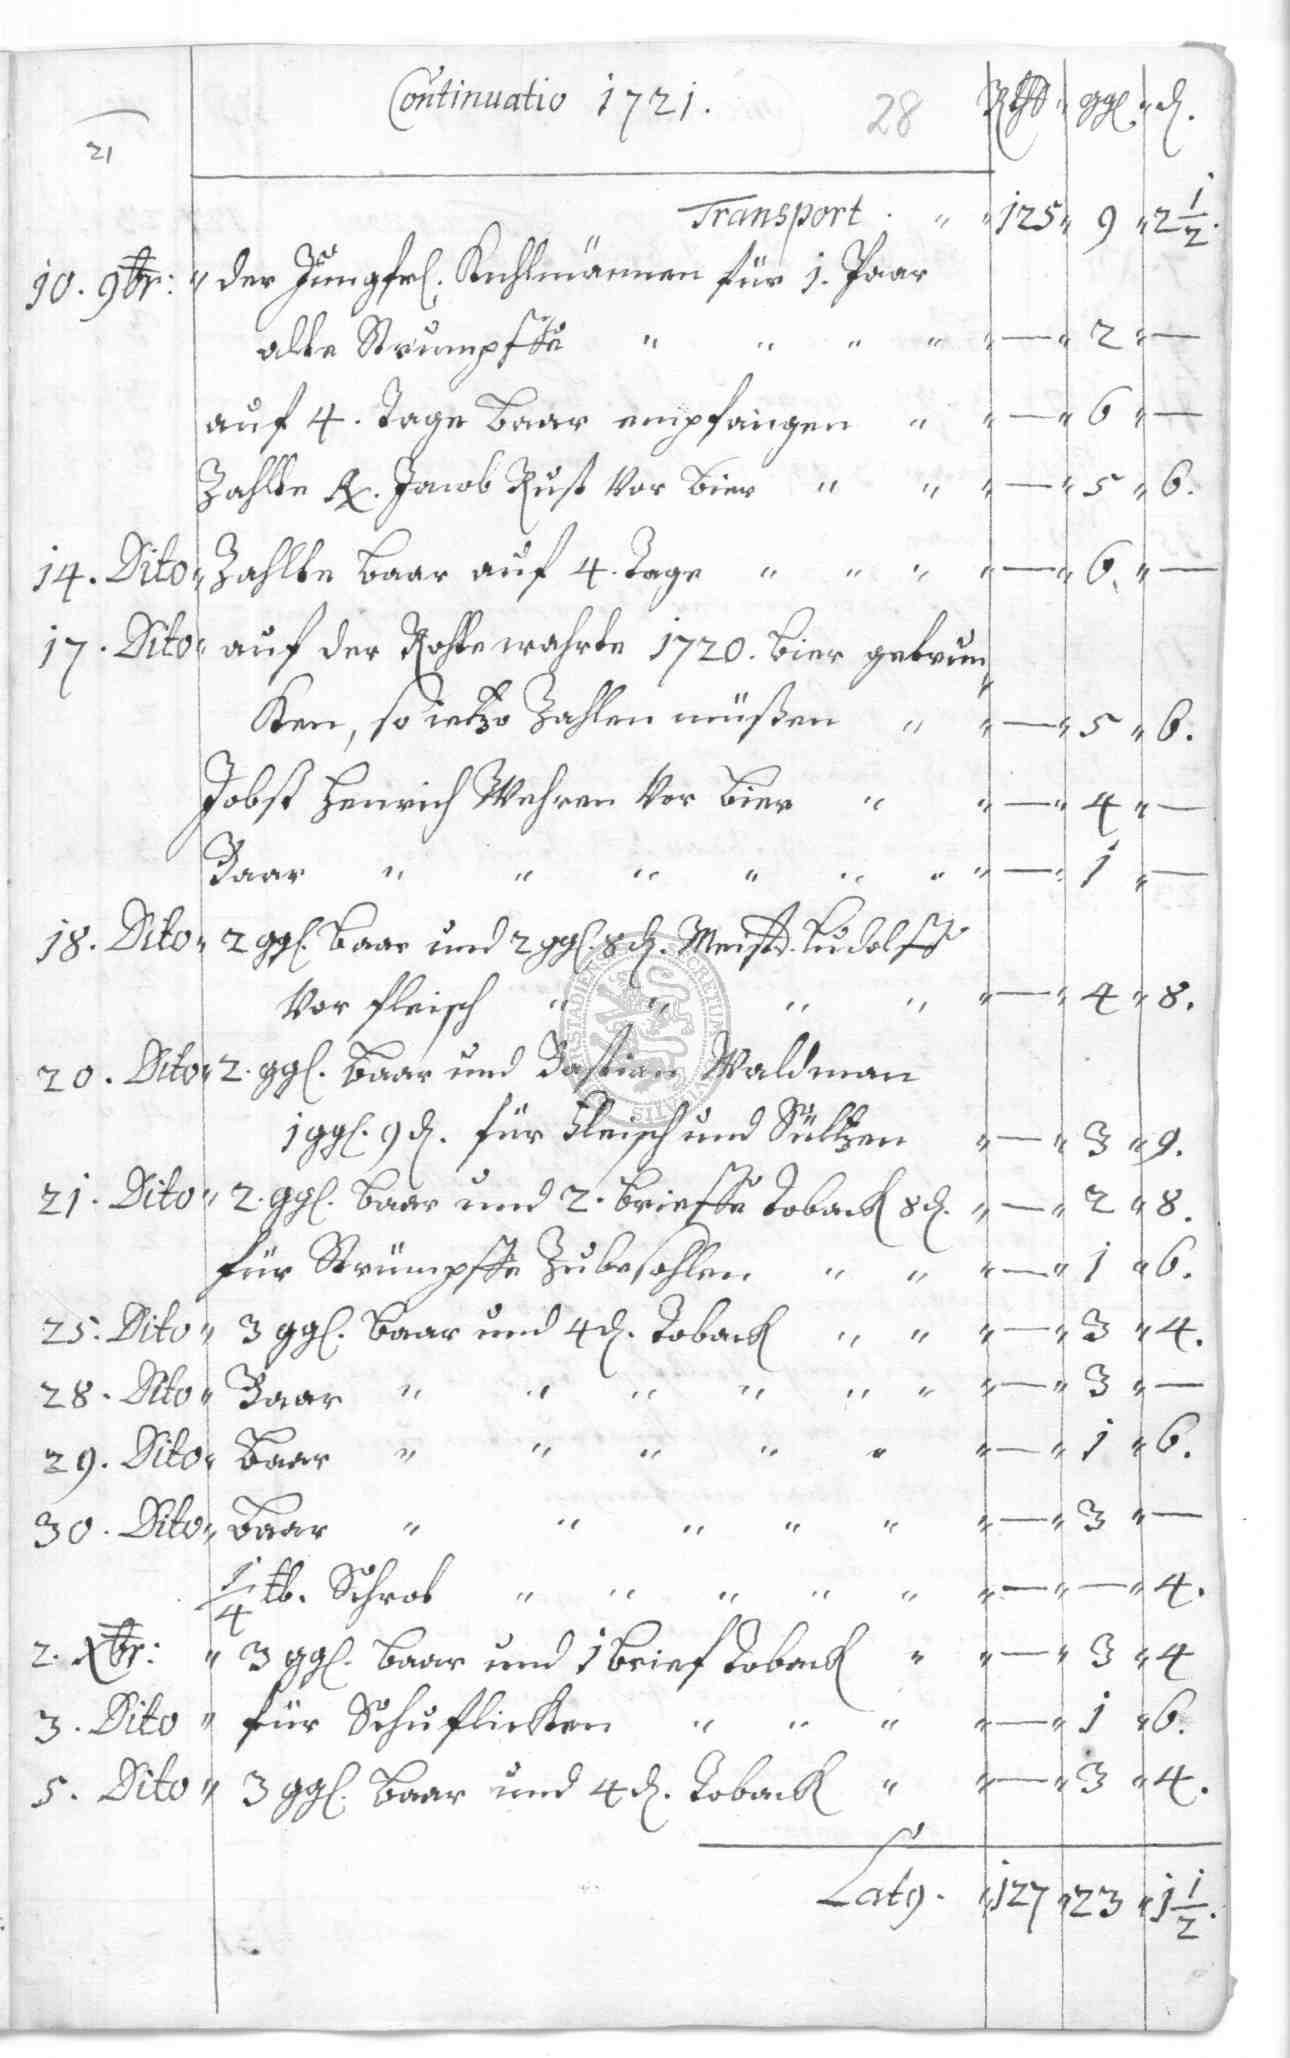 Continuatio 1721.
28
Rthlr ggl. d.
21
Transport. " " 125 " 9 " 2 1/2.
10. 9br: " der Jungfrl. Kuhlmännen für 1. Paar
alte Strumpffe " " " " " — " 2 " —
auf 4. Tage baar empfangen " " — " 6 " —
Zahlte H. Jacob Rust vor bier " " " — " 5 " 6.
14. Dito " Zahlte baar auf 4. Tage " " " " — " 6. " —
17. Dito " auf der Rohtewahrte 1720. bier getrun„
Ken, so ietzo Zahlen müßen " " — " 5 " 6.
Jobst Henrich Wehren vor bier " " — " 4 " —
Baar " " " " " " " — " 1 " —
18. Dito " 2 ggl. baar und 2 ggl. 8 d. Meistr. Ludolff
vor fleisch " " " " " — " 4 " 8.
20. Dito " 2. ggl. baar und Bastian Waldman
1 ggl. 9 d. für Fleisch und Sültzen " — " 3 " 9.
21. Dito " 2. ggl. baar und 2. brieffe Toback 8 d. " — " 2 " 8.
für Strümpffe Zubesohlen " " " — " 1 " 6.
25. Dito " 3 ggl. baar und 4 d. Toback " " " — " 3 " 4.
28. Dito " Baar " " " " " " " — " 3 " —
29. Dito " Baar " " " " " " — " 1 " 6.
30. Dito " baar " " " " " " — " 3 " —
1/4 lb. Schrot " " " " " " — " — " 4.
2. Xbr: " 3 ggl. baar und 1 brief Toback " " — " 3 " 4
3. Dito " für Schuflicken " " " " — " 1 " 6.
5. Dito " 3 ggl. baar und 4 d. Toback " " — " 3 " 4.
Lat9. " 127 " 23 " 1 1/2.